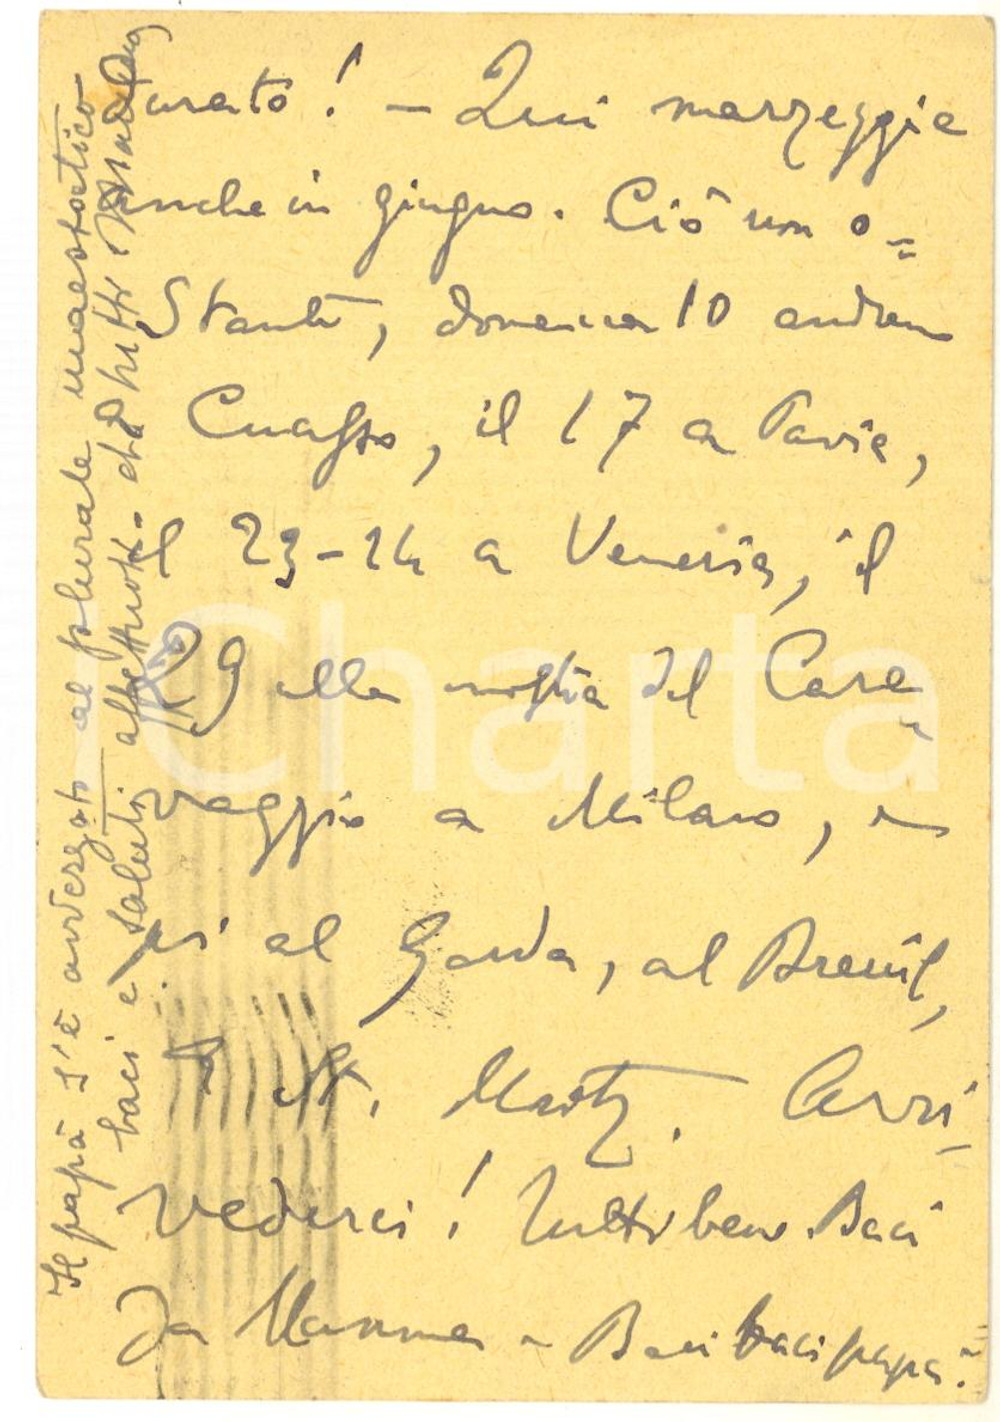 curato! – Qui marzeggia
anche in giugno. Ciò non o=
stante, domenica 10 andrem
Cuasso, il 17 a Pavia,
il 23-24 a Venezia, il
29 alla mostra del Cara
vaggio a Milano, e
poi al Garda, al Breuil,
a St. Moritz. Arri-
vederci! Tutti bene. Baci
da Mamma - Baci baci papà.
Il papà s'è avvezzato al plurale maestatico
baci e saluti affettuosi. da tutti
Charta